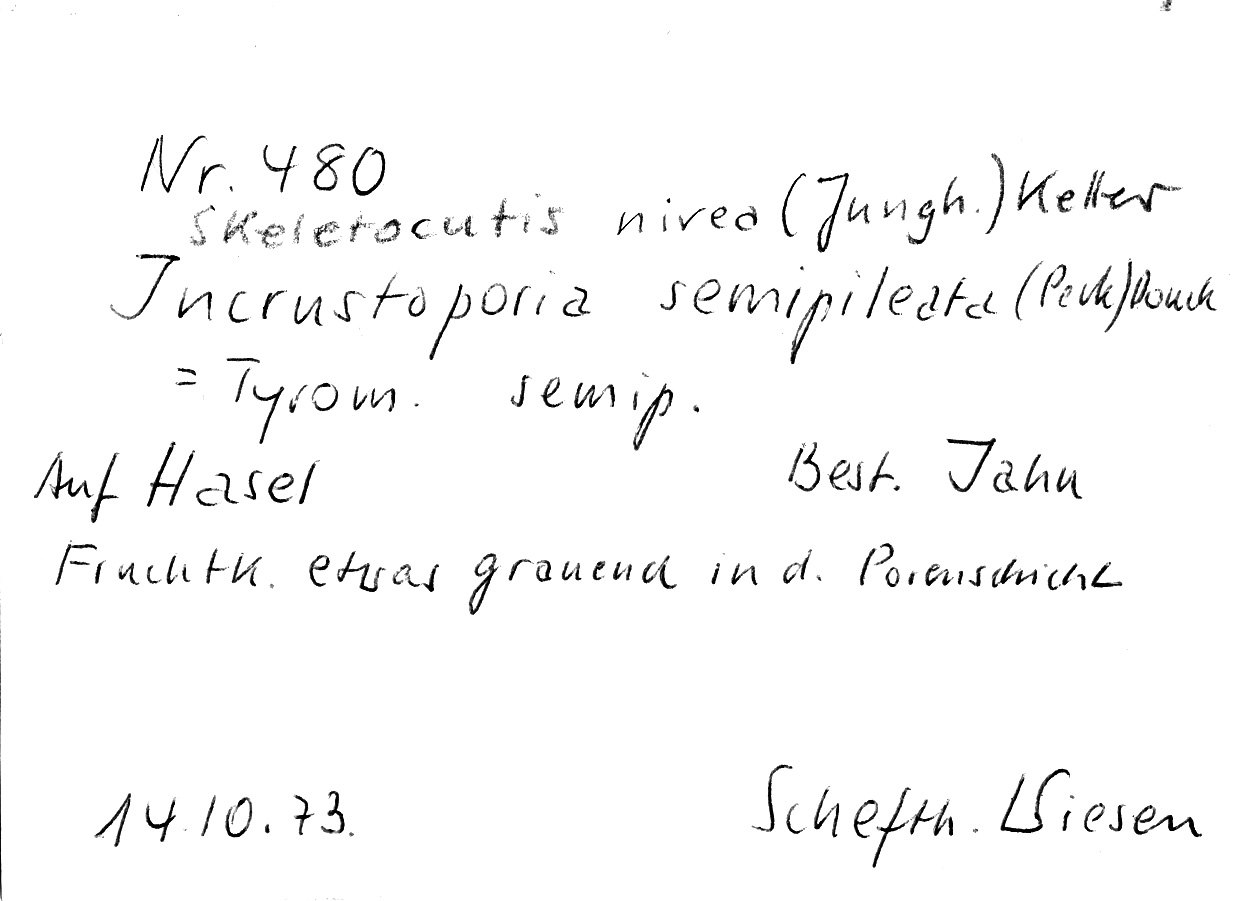 Nr. 480
Skeletocutis nivea (Jungh.) Keller
Incrustoporia semipileata (Peck) Donk
= Tyrom. semip.
Auf Hasel Best. Jahn
Fruchtk. etwas grauend in d. Porenschicht
14.10.73. Schefth. Wiesen